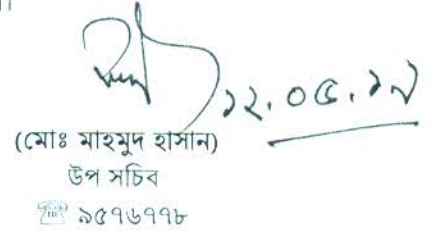 ১২.০৫.১৭
(মোঃ মাহমুদ হাসান)
উপ সচিব
☎ ৯৫৭৬৭৭৮